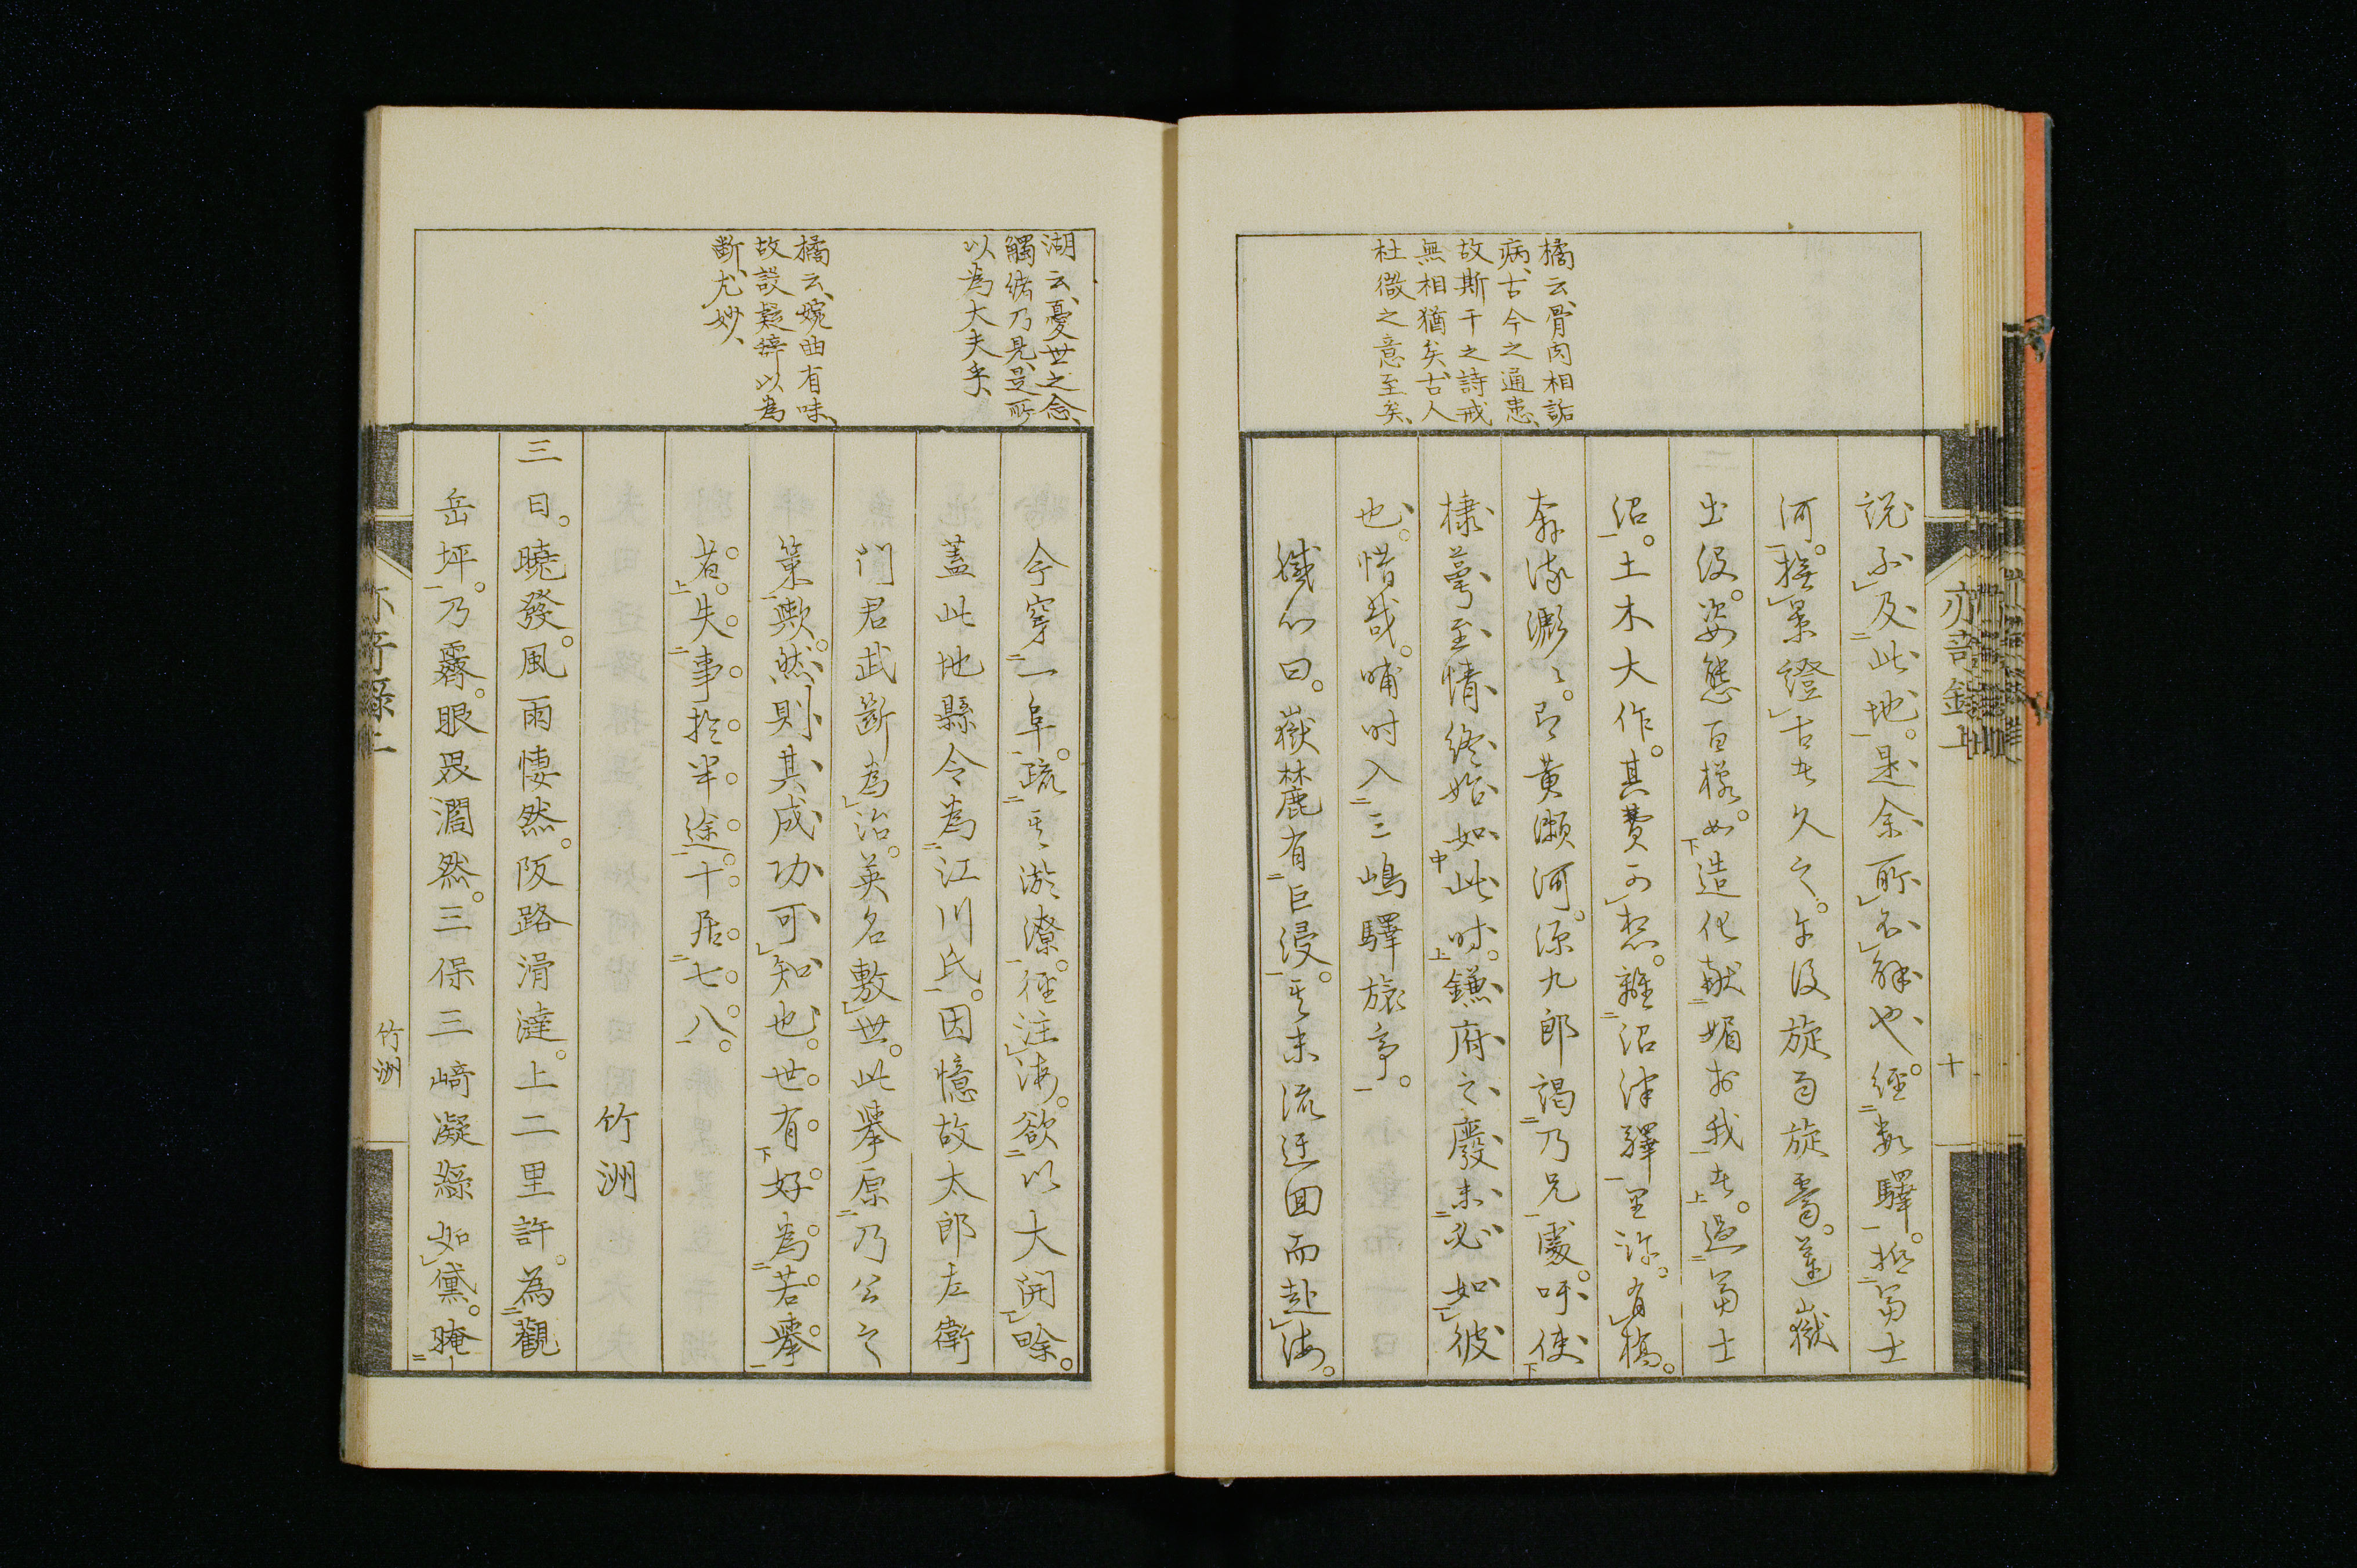 橘云、骨肉相詬
病、古今之通患、
故斯干之詩戒
無相猶矣、古人
杜微之意至矣、
說不及此地。是余所不解也。經數驛。抵富士
河。撫景證古者久之。午後旋雨旋霽。蓮嶽
出沒。姿態百樣。如造化献媚於我者。過富士
沼。土木大作。其費可想。離沼津驛里許。有橋。
奔流濺々。即黃瀨河。源九郎謁乃兄處。呼、使
棣萼至情終始如此時。鎌府之廢未必如彼
也。惜哉。晡時入三嶋驛旅亭。
機心曰。嶽麓有巨浸。其末流迂回而赴海。
亦奇錄上
十
湖云、憂世之念、
觸緒乃見、是所
以為大夫乎、
橘云、婉曲有味、
故設疑辭以為
斷、尤妙、
今穿一阜。疏其淤潦。徑注海。欲以大開畭。
蓋此地縣令為江川氏。因憶故太郎左衛
門君武斷為治。英名敷世。此舉原乃公之
策歟。然則其成功可知也。世有好為若舉
者。失事於半途十居七八。
竹洲
三日。曉發。風雨悽然。阪路滑澾。上二里許。為觀
岳坪。乃霽。眼界濶然。三保三﨑凝綠如黛。掩
竹洲